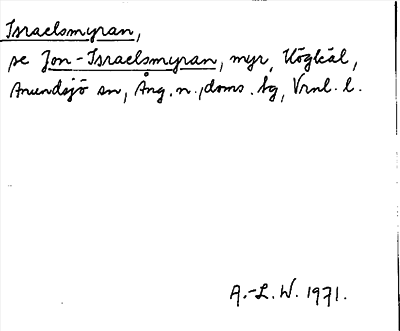 Israelsmyran,
se Jon-Israelsmyran, myr, Högkäl,
Anundsjö sn, Ång. n., doms. bg, Vrnl. l.
A.-L. W. 1971.